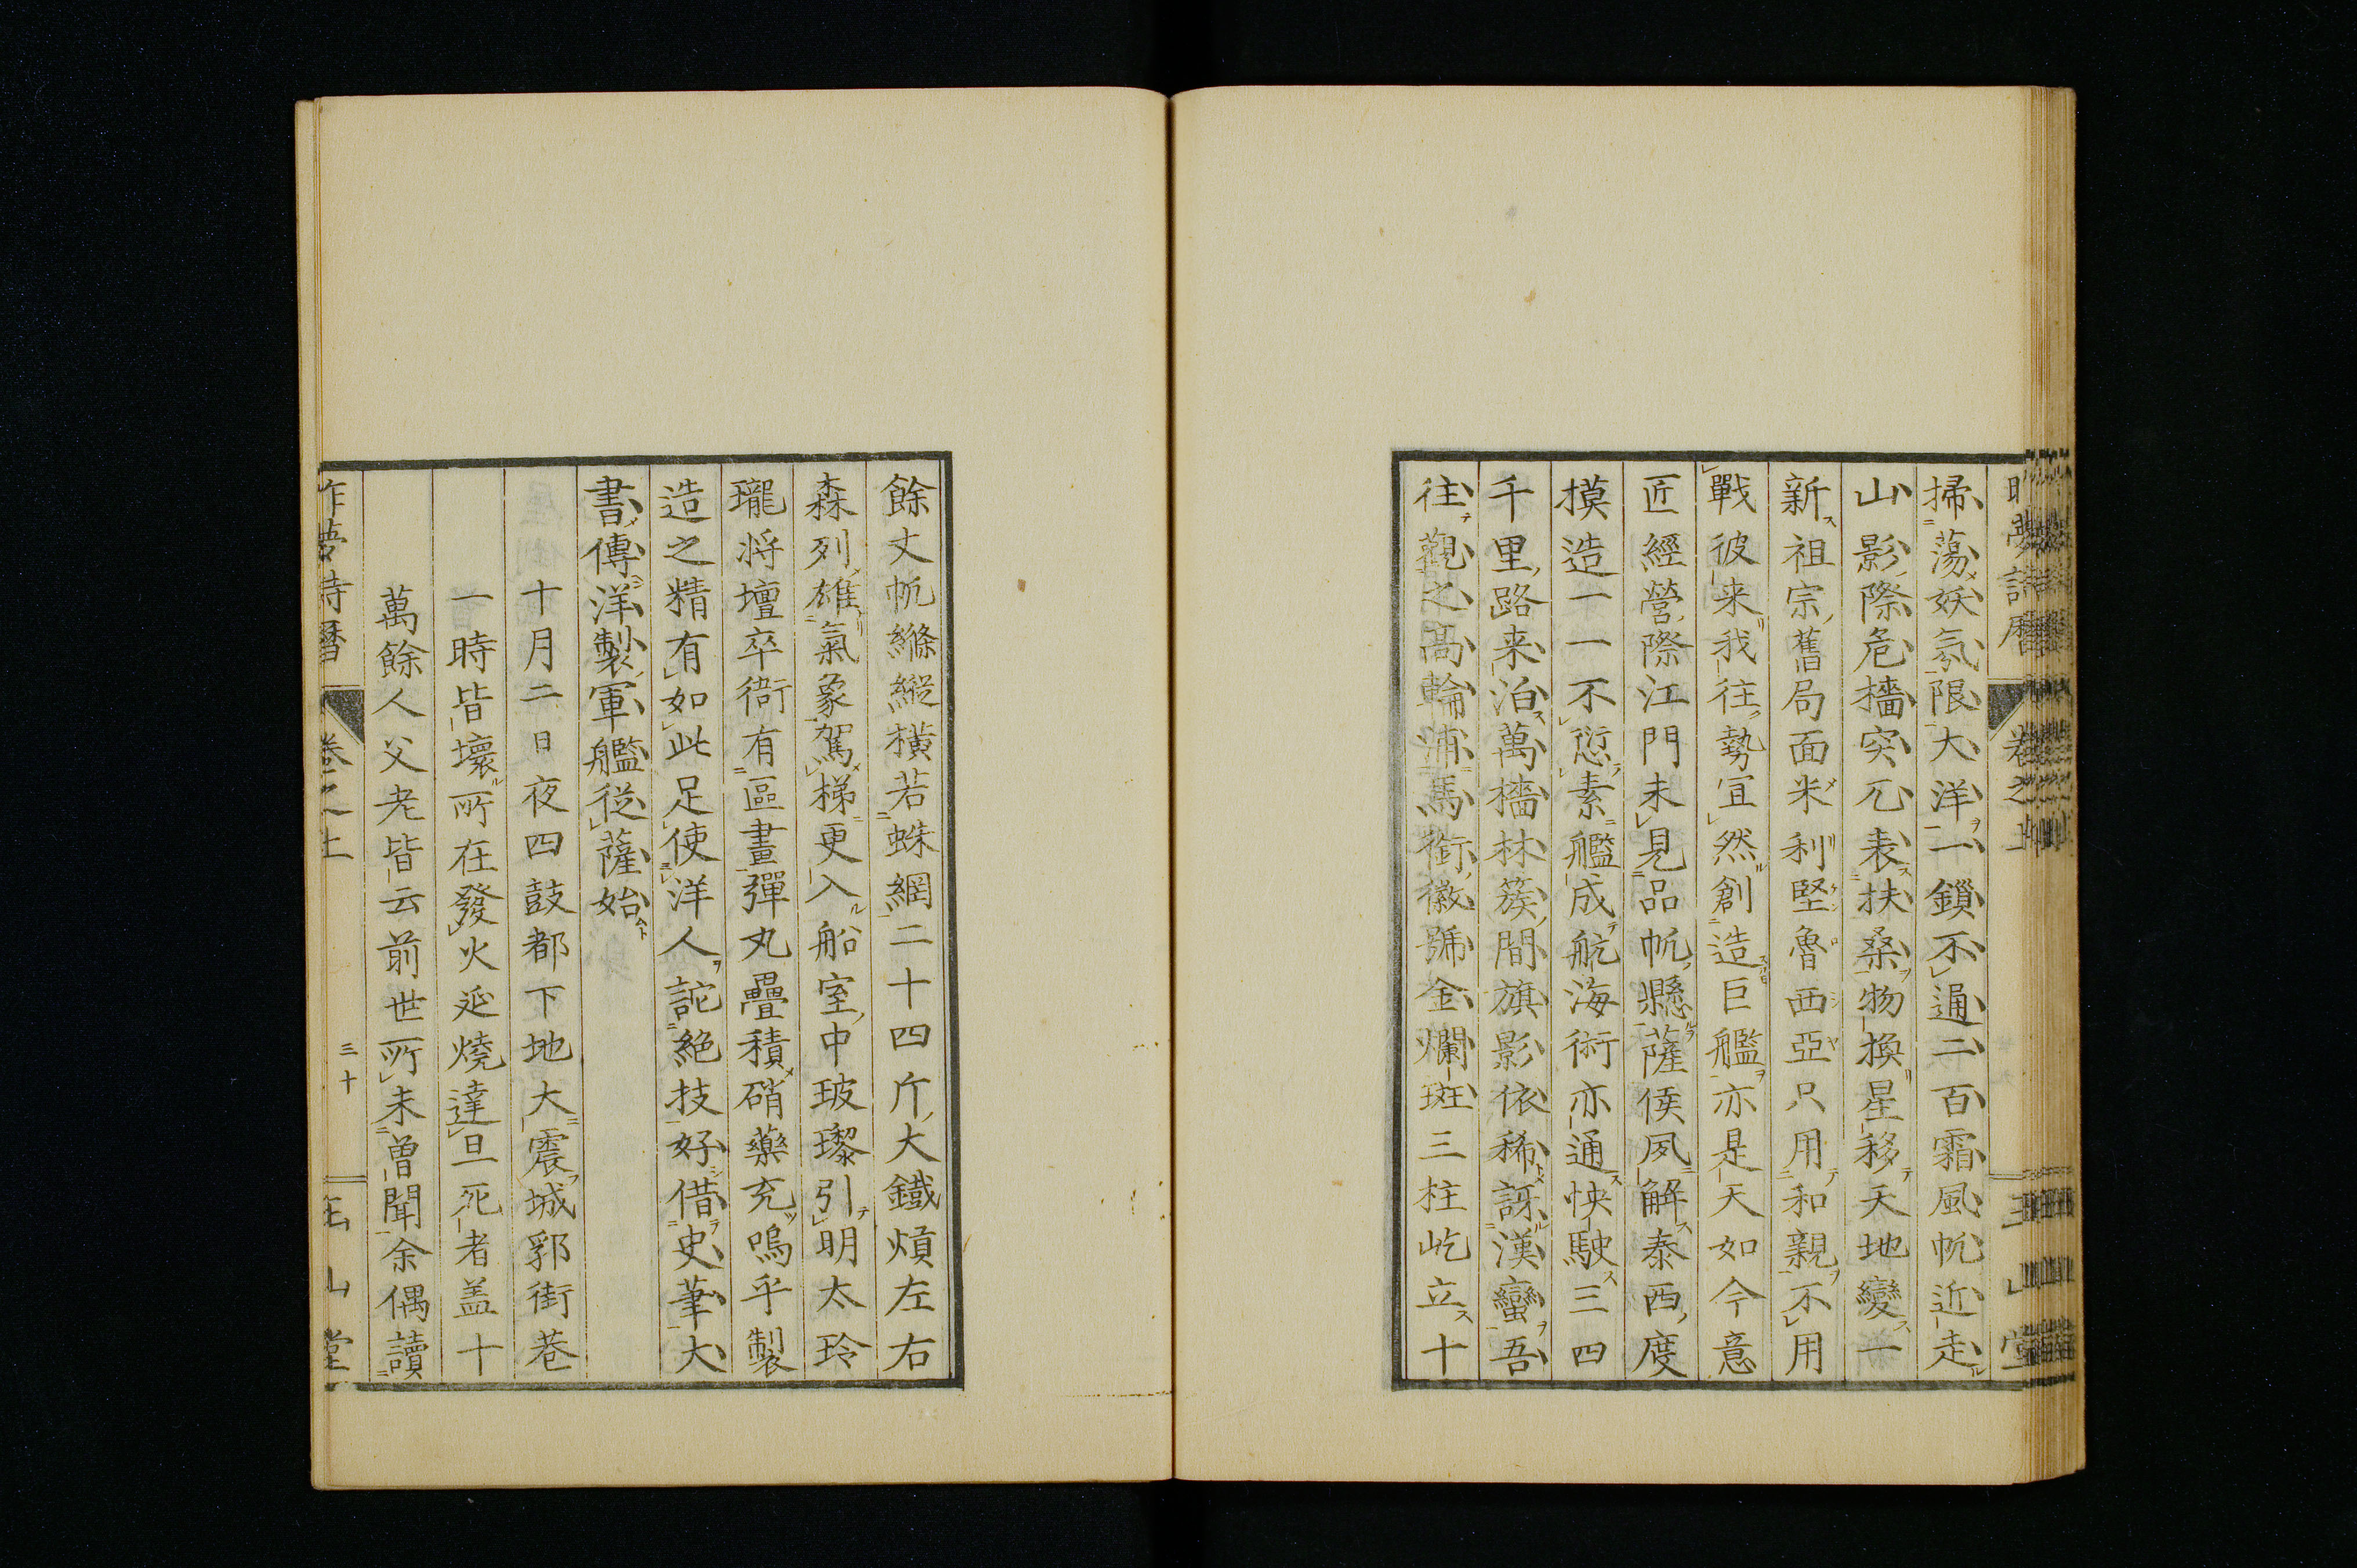 掃蕩妖氛限大洋一鎖不通二百霜風帆近走
山影際危檣突兀表扶桑物換星移天地變一
新祖宗舊局面米利堅魯西亞只用和親不用
戰彼来我往勢宜然創造巨艦亦是天如今意
匠經營際江門未見品帆懸薩侯夙解泰西度
摸造一一不愆素艦成航海術亦通怏駛三四
千里路来泊萬檣林簇間旗影依稀訝漢蠻吾
往觀之高輪浦馬銜徽號金爛斑三柱屹立十
餘丈帆縧縱横若蛛網二十四斤大鐵熕左右
森列雄氣象駕梯更入船室中玻瓈引明太玲
瓏将壇卒衙有區畫彈丸疊積硝藥充嗚乎製
造之精有如此足使洋人詫絶技好借史筆大
書傳洋製軍艦従薩始
十月二日夜四鼓都下地大震城郭街巷
一時皆壞所在發火延燒達旦死者盖十
萬餘人父老皆云前世所未曽聞余偶讀
昨夢詩暦 卷之上 三十 玉山堂